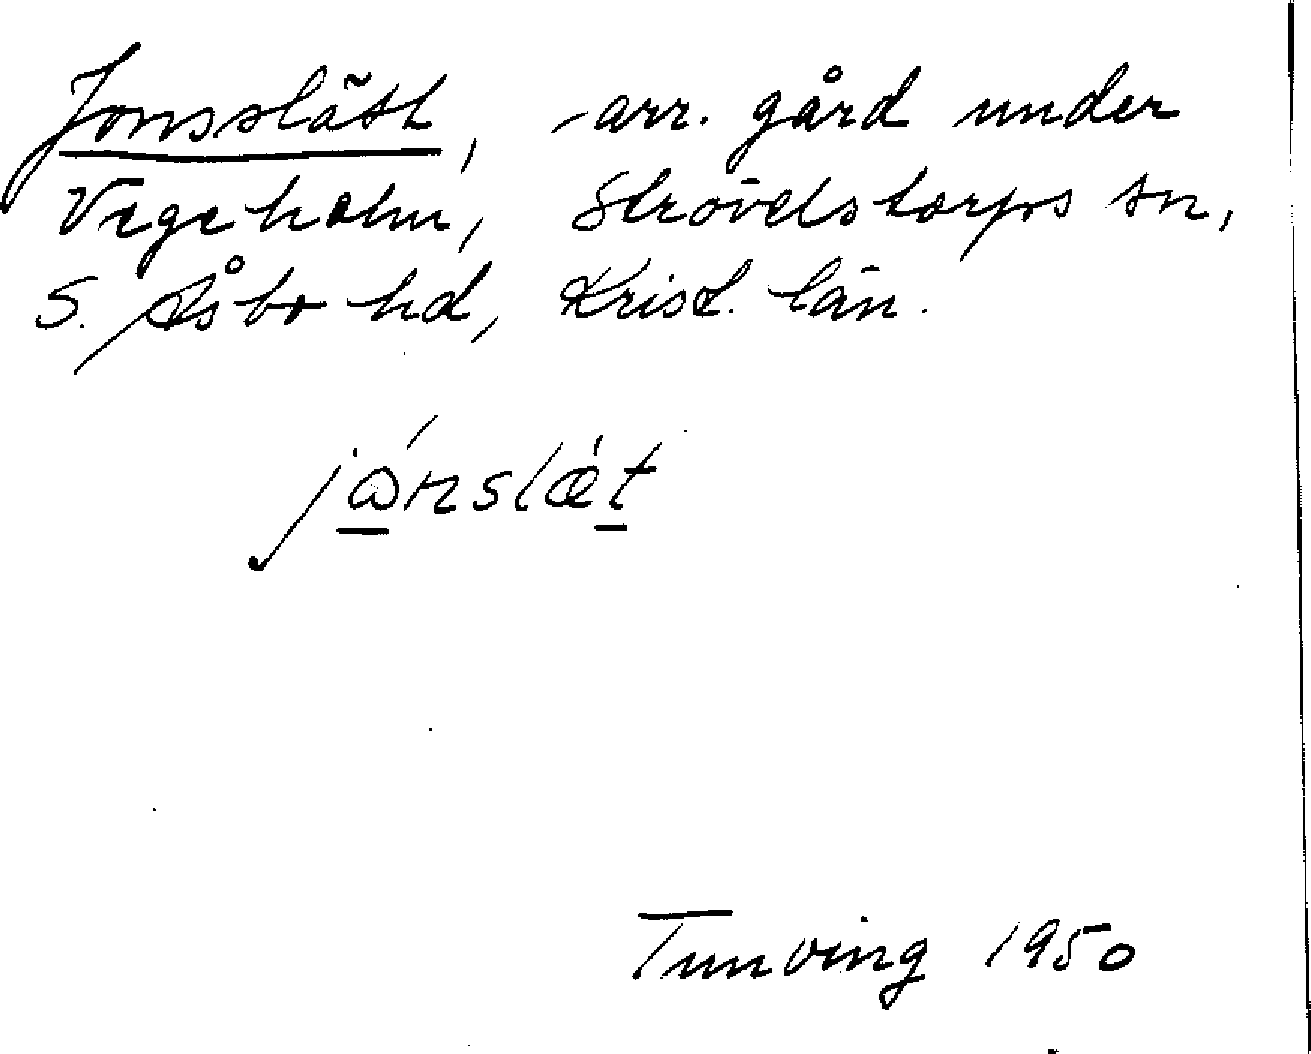 Jonsslätt, arr. gård under
Vegeholm, Strövelstorps sn,
S. Åsbo hd, Krist. län.
jɷ́nslæ̀t
Tunving 1950